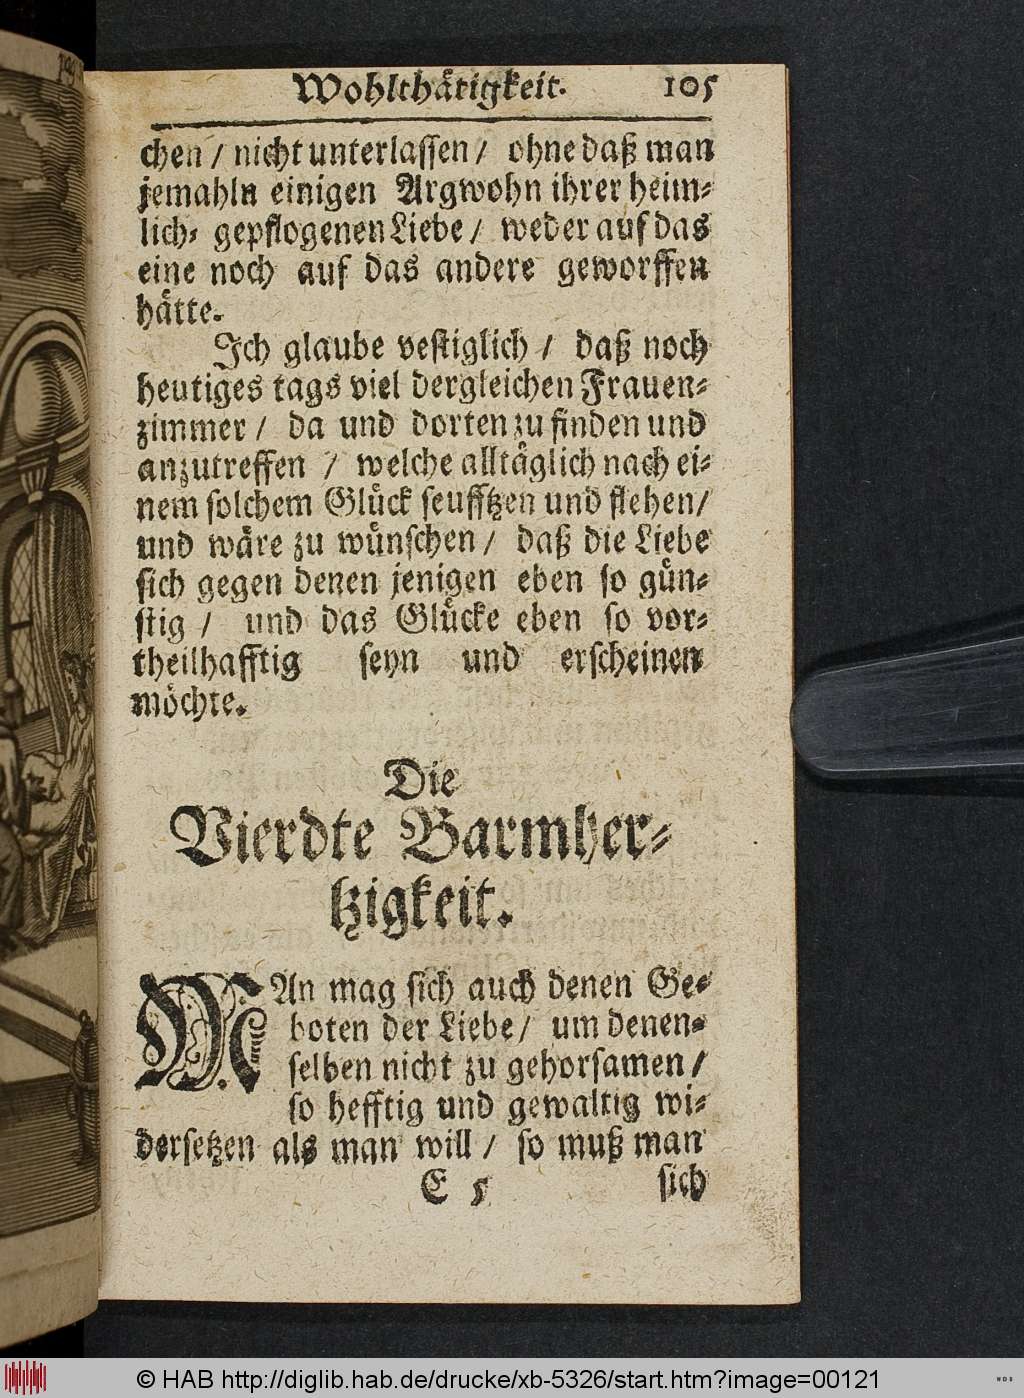 Wohlthätigkeit. 105
chen / nicht unterlassen / ohne daß man
jemahln einigen Argwohn ihrer heim-
lich- gepflogenen Liebe / weder auf das
eine noch auf das andere geworffen
hätte.
Ich glaube vestiglich / daß noch
heutiges tags viel dergleichen Frauen-
zimmer / da und dorten zu finden und
anzutreffen / welche alltäglich nach ei-
nem solchem Glück seufftzen und flehen /
und wäre zu wünschen / daß die Liebe
sich gegen denen jenigen eben so gün-
stig / und das Glücke eben so vor-
theilhafftig seyn und erscheinen
möchte.
Die
Vierdte Barmher-
tzigkeit.
MAn mag sich auch denen Ge-
boten der Liebe / um denen-
selben nicht zu gehorsamen /
so hefftig und gewaltig wi-
dersetzen als man will / so muß man
E 5 sich
© HAB http://diglib.hab.de/drucke/xb-5326/start.htm?image=00121